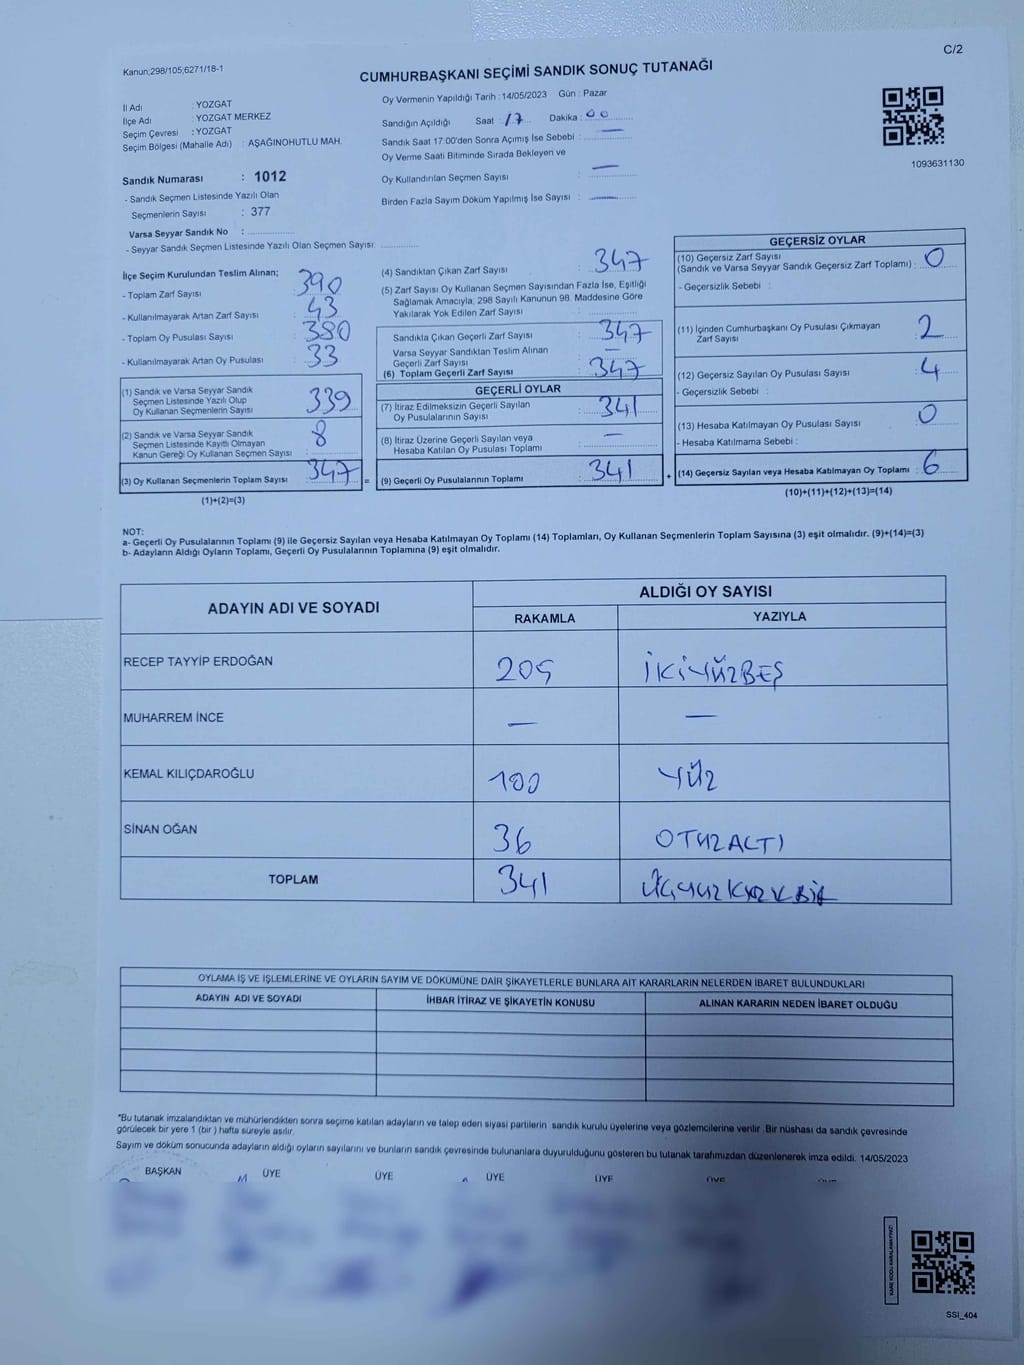 C/2
Kanun;298/105;6271/18-1
CUMHURBAŞKANI SEÇİMİ SANDIK SONUÇ TUTANAĞI
İl Adı : YOZGAT
İlçe Adı : YOZGAT MERKEZ
Seçim Çevresi : YOZGAT
Seçim Bölgesi (Mahalle Adı) : AŞAĞINOHUTLU MAH.
Sandık Numarası : 1012
- Sandık Seçmen Listesinde Yazılı Olan
Seçmenlerin Sayısı : 377
Varsa Seyyar Sandık No :
- Seyyar Sandık Seçmen Listesinde Yazılı Olan Seçmen Sayısı:
Oy Vermenin Yapıldığı Tarih : 14/05/2023 Gün : Pazar
Sandığın Açıldığı Saat : 17 Dakika : 00
Sandık Saat 17:00'den Sonra Açımış İse Sebebi : —
Oy Verme Saati Bitiminde Sırada Bekleyen ve
Oy Kullandırılan Seçmen Sayısı : —
Birden Fazla Sayım Döküm Yapılmış İse Sayısı : —
1093631130
İlçe Seçim Kurulundan Teslim Alınan;
- Toplam Zarf Sayısı : 390
- Kullanılmayarak Artan Zarf Sayısı : 43
- Toplam Oy Pusulası Sayısı : 380
- Kullanılmayarak Artan Oy Pusulası : 33
(1) Sandık ve Varsa Seyyar Sandık
Seçmen Listesinde Yazılı Olup
Oy Kullanan Seçmenlerin Sayısı : 339
(2) Sandık ve Varsa Seyyar Sandık
Seçmen Listesinde Kayıtlı Olmayan
Kanun Gereği Oy Kullanan Seçmen Sayısı : 8
(3) Oy Kullanan Seçmenlerin Toplam Sayısı : 347 =
(1)+(2)=(3)
(4) Sandıktan Çıkan Zarf Sayısı : 347
(5) Zarf Sayısı Oy Kullanan Seçmen Sayısından Fazla İse, Eşitliği
Sağlamak Amacıyla, 298 Sayılı Kanunun 98. Maddesine Göre
Yakılarak Yok Edilen Zarf Sayısı :
Sandıkta Çıkan Geçerli Zarf Sayısı : 347
Varsa Seyyar Sandıktan Teslim Alınan
Geçerli Zarf Sayısı : —
(6) Toplam Geçerli Zarf Sayısı : 347
GEÇERLİ OYLAR
(7) İtiraz Edilmeksizin Geçerli Sayılan
Oy Pusulalarının Sayısı : 341
(8) İtiraz Üzerine Geçerli Sayılan veya
Hesaba Katılan Oy Pusulası Toplamı : —
(9) Geçerli Oy Pusulalarının Toplamı : 341 +
GEÇERSİZ OYLAR
(10) Geçersiz Zarf Sayısı
(Sandık ve Varsa Seyyar Sandık Geçersiz Zarf Toplamı) : 0
- Geçersizlik Sebebi :
(11) İçinden Cumhurbaşkanı Oy Pusulası Çıkmayan
Zarf Sayısı : 2
(12) Geçersiz Sayılan Oy Pusulası Sayısı : 4
- Geçersizlik Sebebi :
(13) Hesaba Katılmayan Oy Pusulası Sayısı : 0
- Hesaba Katılmama Sebebi :
(14) Geçersiz Sayılan veya Hesaba Katılmayan Oy Toplamı : 6
(10)+(11)+(12)+(13)=(14)
NOT:
a- Geçerli Oy Pusulalarının Toplamı (9) ile Geçersiz Sayılan veya Hesaba Katılmayan Oy Toplamı (14) Toplamları, Oy Kullanan Seçmenlerin Toplam Sayısına (3) eşit olmalıdır. (9)+(14)=(3)
b- Adayların Aldığı Oyların Toplamı, Geçerli Oy Pusulalarının Toplamına (9) eşit olmalıdır.
ADAYIN ADI VE SOYADI ALDIĞI OY SAYISI
RAKAMLA YAZIYLA
RECEP TAYYİP ERDOĞAN 205 İKİYÜZBEŞ
MUHARREM İNCE — —
KEMAL KILIÇDAROĞLU 100 YÜZ
SİNAN OĞAN 36 OTUZALTI
TOPLAM 341 ÜÇYÜZKIRKBİR
OYLAMA İŞ VE İŞLEMLERİNE VE OYLARIN SAYIM VE DÖKÜMÜNE DAİR ŞİKAYETLERLE BUNLARA AİT KARARLARIN NELERDEN İBARET BULUNDUKLARI
ADAYIN ADI VE SOYADI İHBAR İTİRAZ VE ŞİKAYETİN KONUSU ALINAN KARARIN NEDEN İBARET OLDUĞU
*Bu tutanak imzalandıktan ve mühürlendikten sonra seçime katılan adayların ve talep eden siyasi partilerin sandık kurulu üyelerine veya gözlemcilerine verilir .Bir nüshası da sandık çevresinde
görülecek bir yere 1 (bir ) hafta süreyle asılır.
Sayım ve döküm sonucunda adayların aldığı oyların sayılarını ve bunların sandık çevresinde bulunanlara duyurulduğunu gösteren bu tutanak tarafımızdan düzenlenerek imza edildi. 14/05/2023
BAŞKAN ÜYE ÜYE ÜYE ÜYE ÜYE
KARE KODU KARALAMAYINIZ!
SSI_404